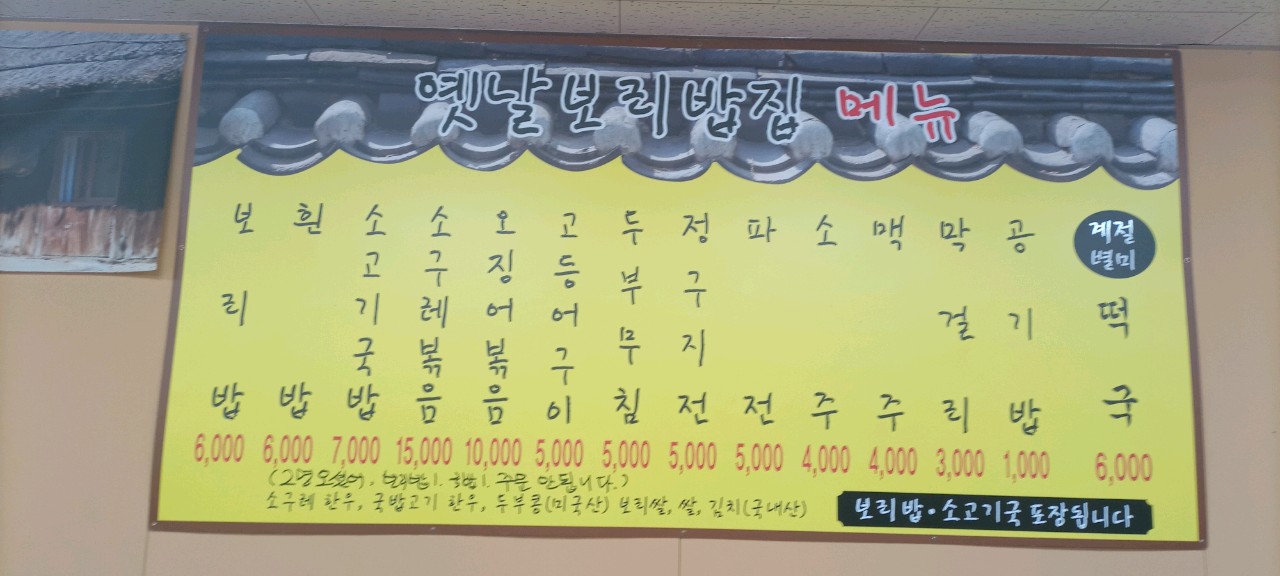 옛날보리밥집 메뉴
보리밥 6,000
흰밥 6,000
소고기국밥 7,000
소구레볶음 15,000
오징어볶음 10,000
고등어구이 5,000
두부무침 5,000
정구지전 5,000
파전 5,000
소주 4,000
맥주 4,000
막걸리 3,000
공기밥 1,000
계절
별미
떡국 6,000
주문 안됩니다.)
소구레 한우, 국밥고기 한우, 두부콩(미국산) 보리쌀, 쌀, 김치(국내산)
보리밥·소고기국 포장됩니다